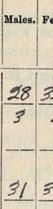 Males. Fe
28 3
3
31 3